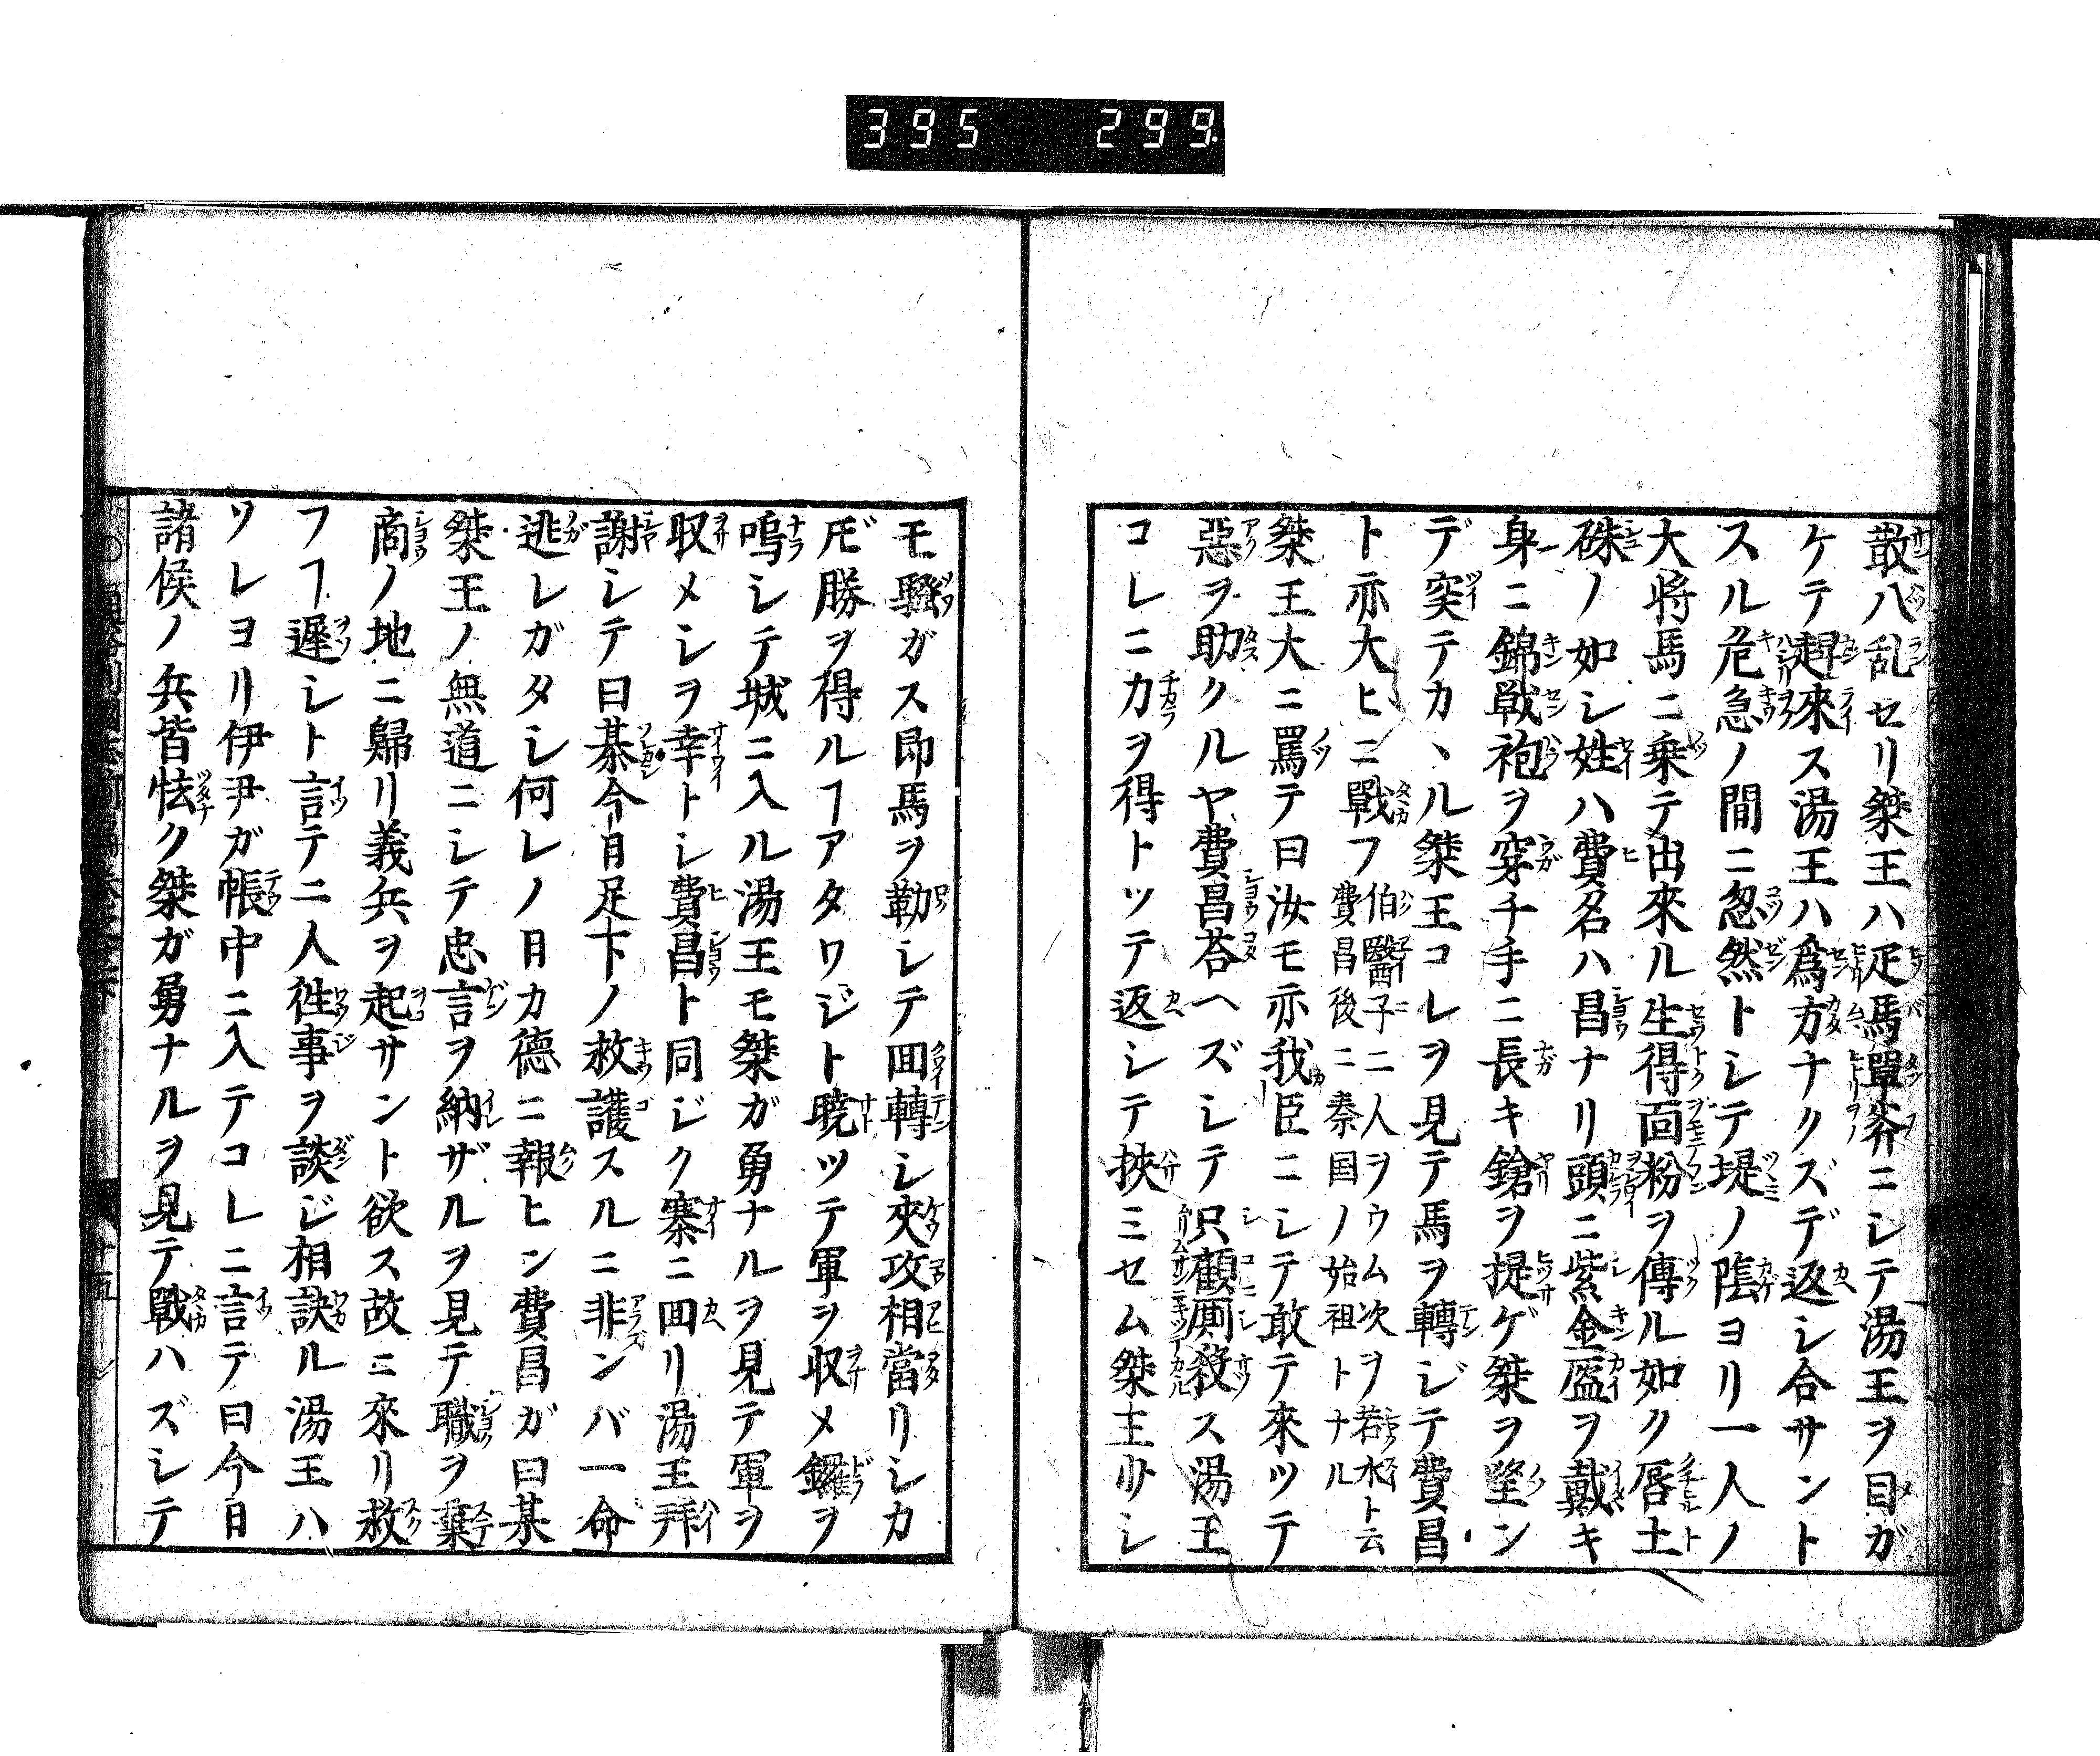 395 299
散八乱セリ桀王ハ疋馬單奔ニシテ湯王ヲ目ガ
ケテ趕來ス湯王ハ爲方ナクズデ返シ合サント
スル危急ノ間ニ忽然トシテ堤ノ陰ヨリ一人ノ
大将馬ニ乗テ出來ル生得面粉ヲ傳ル如ク唇土
硃ノ如シ姓ハ費名ハ昌ナリ頭ニ紫金盔ヲ戴キ
身ニ錦戦袍ヲ穿チ手ニ長キ鎗ヲ提ゲ桀ヲ望ン
デ突テカヽル桀王コレヲ見テ馬ヲ轉ジテ費昌
ト亦大ヒニ戰フ伯醫子二人ヲウム次ヲ若水ト云
費昌後ニ秦国ノ始祖トナル
桀王大ニ罵テ曰汝モ亦我臣ニシテ敢テ來ツテ
惡ヲ助クルヤ費昌荅ヘズシテ只顧厮殺ス湯王
コレニ力ヲ得トツテ返シテ挾ミセム桀王少シ
モ騒ガス即馬ヲ勒シテ囬轉シ夾攻相當リシカ
𪜈勝ヲ得ルヿアタワジト暁ツテ軍ヲ収メ鑼ヲ
鳴シテ城ニ入ル湯王モ桀ガ勇ナルヲ見テ軍ヲ
収メシヲ幸トシ費昌ト同ジク寨ニ囬リ湯王拜
謝シテ曰棊今日足下ノ救護スルニ非ンバ一命
逃レガタシ何レノ日カ德ニ報ヒン費昌ガ曰某
桀王ノ無道ニシテ忠言ヲ納ザルヲ見テ職ヲ棄
商ノ地ニ歸リ義兵ヲ起サント欲ス故ニ來リ救
フヿ遲シト言テ二人徃事ヲ談ジ相訣ル湯王ハ
ソレヨリ伊尹ガ帳中ニ入テコレニ言テ曰今日
諸侯ノ兵皆怯ク桀ガ勇ナルヲ見テ戰ハズシテ
十五